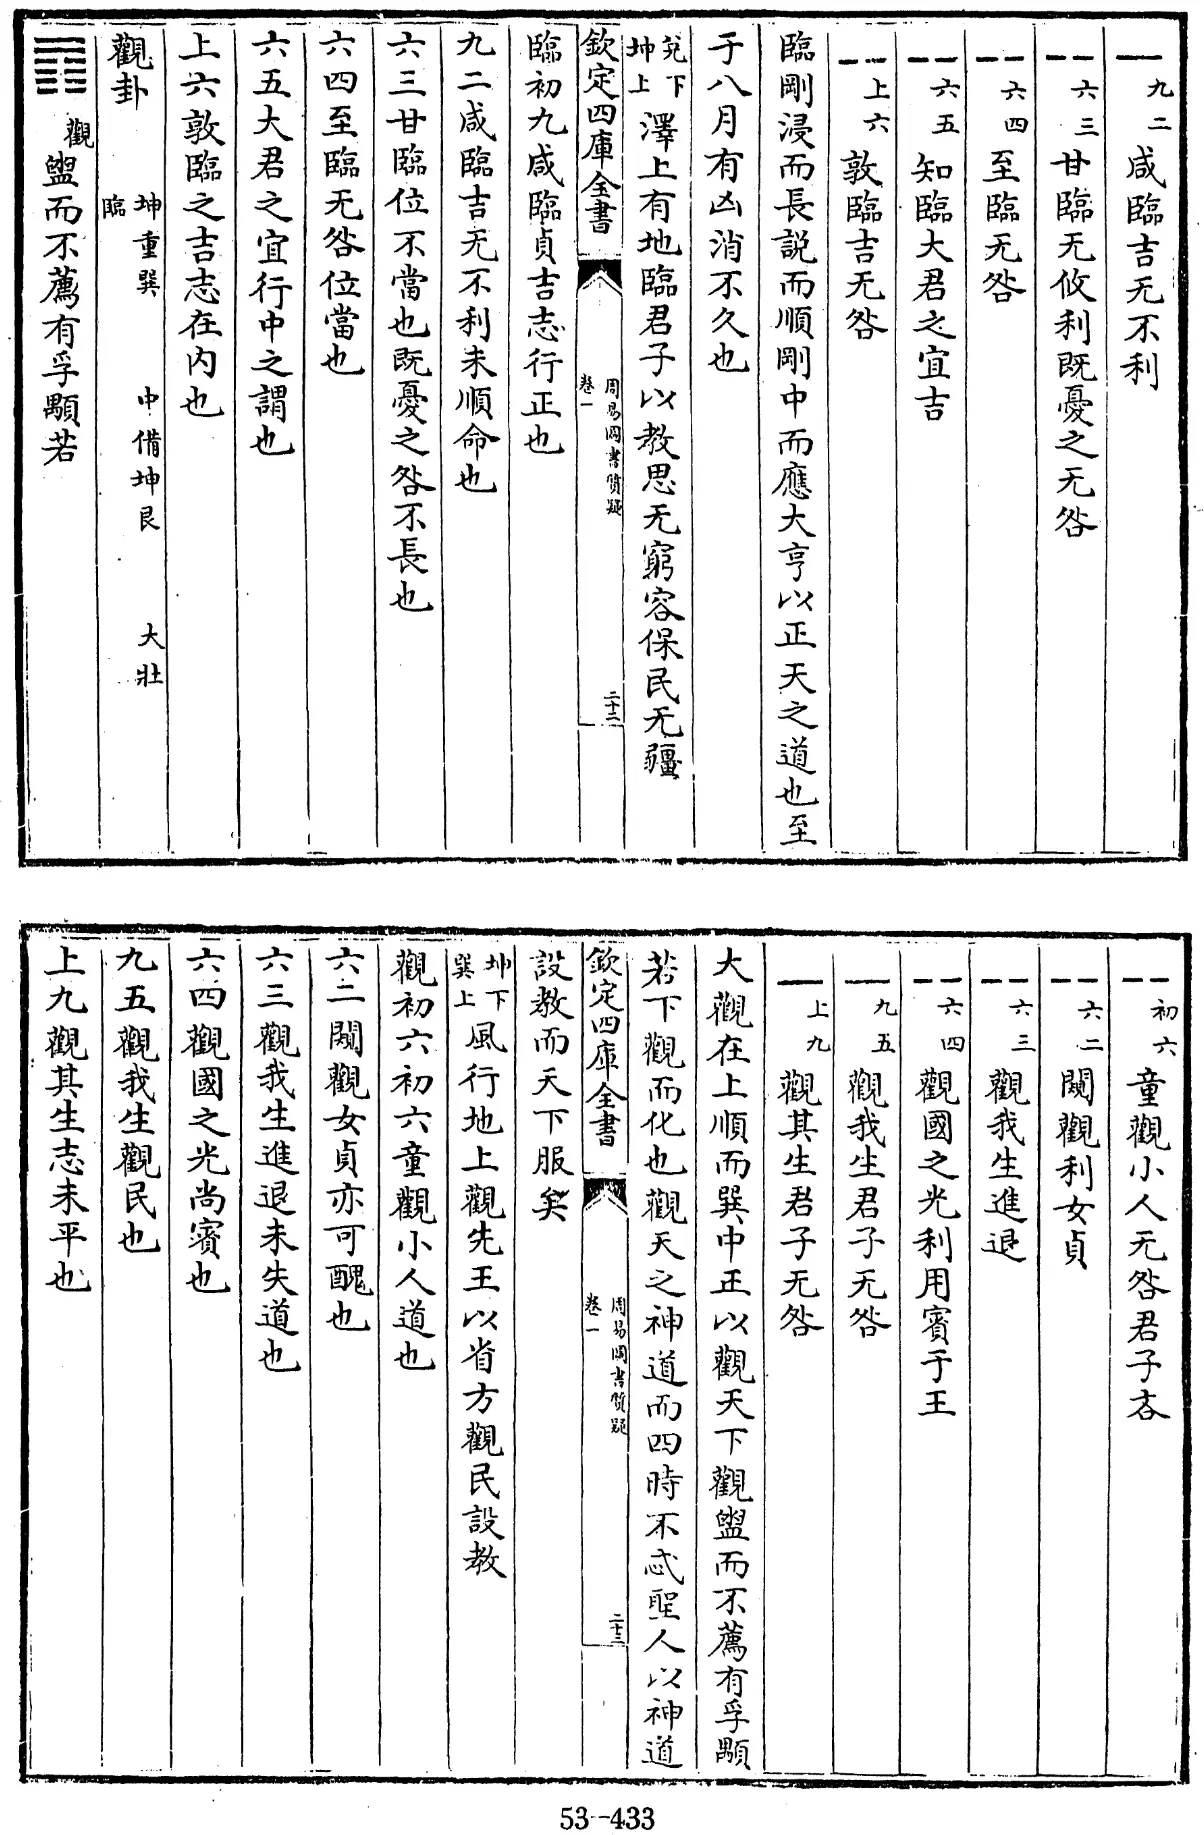 九二咸臨吉无不利
六三甘臨无攸利既憂之无咎
六四至臨无咎
六五知臨大君之宜吉
上六敦臨吉无咎
臨剛浸而長説而順剛中而應大亨以正天之道也至
于八月有凶消不久也
兌下坤上澤上有地臨君子以教思无窮容保民无疆
欽定四庫全書
周易圖書質疑
卷一
二十二
臨初九咸臨貞吉志行正也
九二咸臨吉无不利未順命也
六三甘臨位不當也既憂之咎不長也
六四至臨无咎位當也
六五大君之宜行中之謂也
上六敦臨之吉志在内也
觀卦 坤重巽 中備坤艮 大壯
臨
觀盥而不薦有孚顒若
初六童觀小人无咎君子吝
六二闚觀利女貞
六三觀我生進退
六四觀國之光利用賓于王
九五觀我生君子无咎
上九觀其生君子无咎
大觀在上順而巽中正以觀天下觀盥而不薦有孚顒
若下觀而化也觀天之神道而四時不忒聖人以神道
欽定四庫全書
周易圖書質疑
卷一
二十三
設教而天下服矣
坤下巽上風行地上觀先王以省方觀民設教
觀初六初六童觀小人道也
六二闚觀女貞亦可醜也
六三觀我生進退未失道也
六四觀國之光尚賓也
九五觀我生觀民也
上九觀其生志未平也
53-433